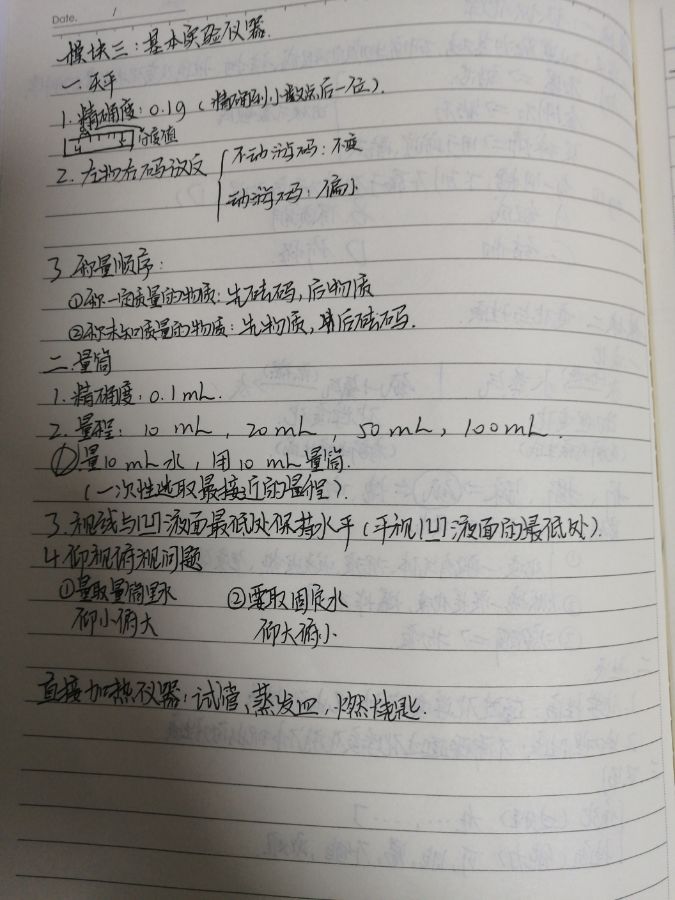 Date. /
模块三:基本实验仪器.
一.天平
1.精确度:0.1g(精确到小数点后一位).
分度值
2.左物右码放反 不动游码:不变
动游码:偏小
3.称量顺序:
①称一定质量的物质:先砝码,后物质
②称未知质量的物质:先物质,后砝码.
二.量筒
1.精确度:0.1mL.
2.量程:10mL,20mL,50mL,100mL.
①量10mL水,用10mL量筒.
(一次性选取最接近的量程).
3.视线与凹液面最低处保持水平(平视凹液面的最低处).
4.仰视俯视问题
①量取量筒里水 ②要取固定水
仰小俯大 仰大俯小
直接加热仪器:试管,蒸发皿,燃烧匙.